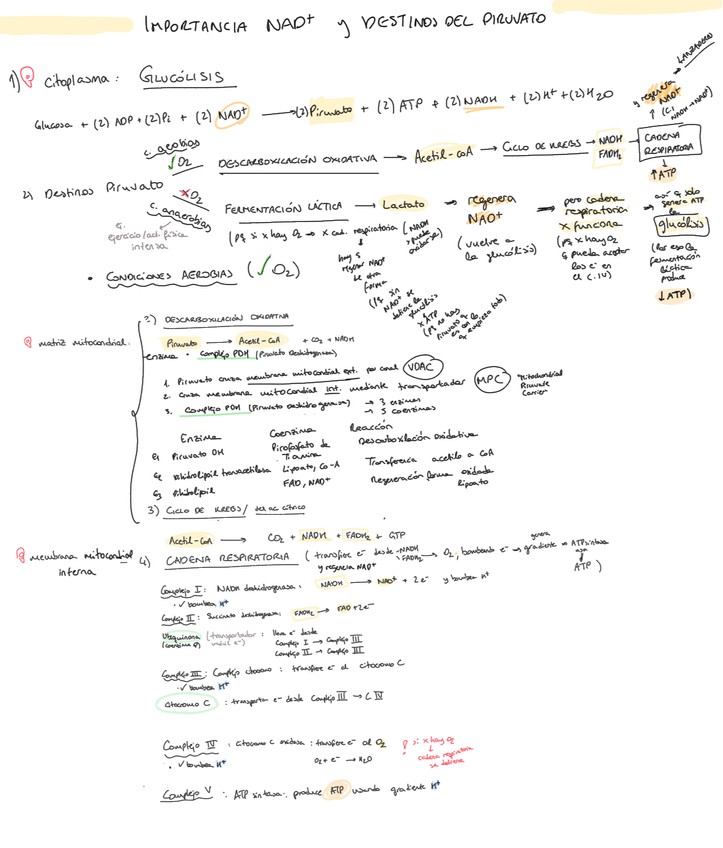 IMPORTANCIA NAD⁺ y DESTINOS DEL PIRUVATO
1) Citoplasma: GLUCÓLISIS
Glucosa + (2) ADP + (2) Pi + (2) NAD⁺ → (2) Piruvato + (2) ATP + (2) NADH + (2) H⁺ + (2) H₂O
LANZADERAS
y regenera NAD⁺
↑ (C.I NADH → NAD⁺)
2) Destinos Piruvato
c. aerobias
✓ O₂
DESCARBOXILACIÓN OXIDATIVA → Acetil-CoA → CICLO DE KREBS → NADH FADH₂ → CADENA RESPIRATORIA
↑ ATP
X O₂
c. anaerobias
ejercicio/act. física intensa
FERMENTACIÓN LÁCTICA → Lactato → regenera NAD⁺ → pero cadena respiratoria x funciona → así q solo genera ATP la glucólisis
(pq si x hay O₂ → x cad. respiratoria (NADH x puede oxidarse)
hay q regenerar NAD⁺ de otra forma
(pq sin NAD⁺ se detiene la glucólisis
x ATP
(vuelve a la glucólisis)
(pq x hay O₂ q pueda aceptar los e⁻ en el C.IV)
(Por eso la fermentación láctica produce ↓ATP)
• CONDICIONES AEROBIAS (✓ O₂)
matriz mitocondrial
2) DESCARBOXILACIÓN OXIDATIVA
Piruvato → Acetil-CoA + CO₂ + NADH
enzima • Complejo PDH (Piruvato Deshidrogenasa)
1. Piruvato cruza membrana mitocondrial ext. por canal VDAC
2. cruza membrana mitocondrial int. mediante transportador MPC Mitochondrial Piruvate Carrier
3. Complejo PDH (Piruvato deshidrogenasa) → 3 enzimas
→ 5 coenzimas
Enzima Coenzima Reacción
E₁ Piruvato DH Pirofosfato de Tiamina Descarboxilación oxidativa
E₂ dihidrolipoil transacetilasa Lipoato, Co-A Transferencia acetilo a CoA
E₃ Dihidrolipoil FAD, NAD⁺ Regeneración forma oxidada lipoato
3) CICLO DE KREBS / del ac. cítrico
Acetil-CoA → CO₂ + NADH + FADH₂ + GTP
membrana mitocondrial interna
4) CADENA RESPIRATORIA (transfiere e⁻ desde NADH FADH₂ → O₂, bombeando e⁻ → genera gradiente → ATP sintasa usa ATP)
y regenera NAD⁺
Complejo I: NADH deshidrogenasa: NADH → NAD⁺ + 2e⁻ y bombea H⁺
• ✓ bombea H⁺
Complejo II: Succinato deshidrogenasa: FADH₂ → FAD + 2e⁻
Ubiquinona (coenzima Q) (transportador móvil e⁻): lleva e⁻ desde
Complejo I → Complejo III
Complejo II → Complejo III
Complejo III: Complejo citocromo: transfiere e⁻ al citocromo C
• ✓ bombea H⁺
Citocromo C: transporta e⁻ desde Complejo III → C IV
Complejo IV: citocromo C oxidasa: transfiere e⁻ al O₂
• ✓ bombea H⁺ O₂ + e⁻ → H₂O
! si x hay O₂
↓
cadena respiratoria se detiene
Complejo V: ATP sintasa: produce ATP usando gradiente H⁺